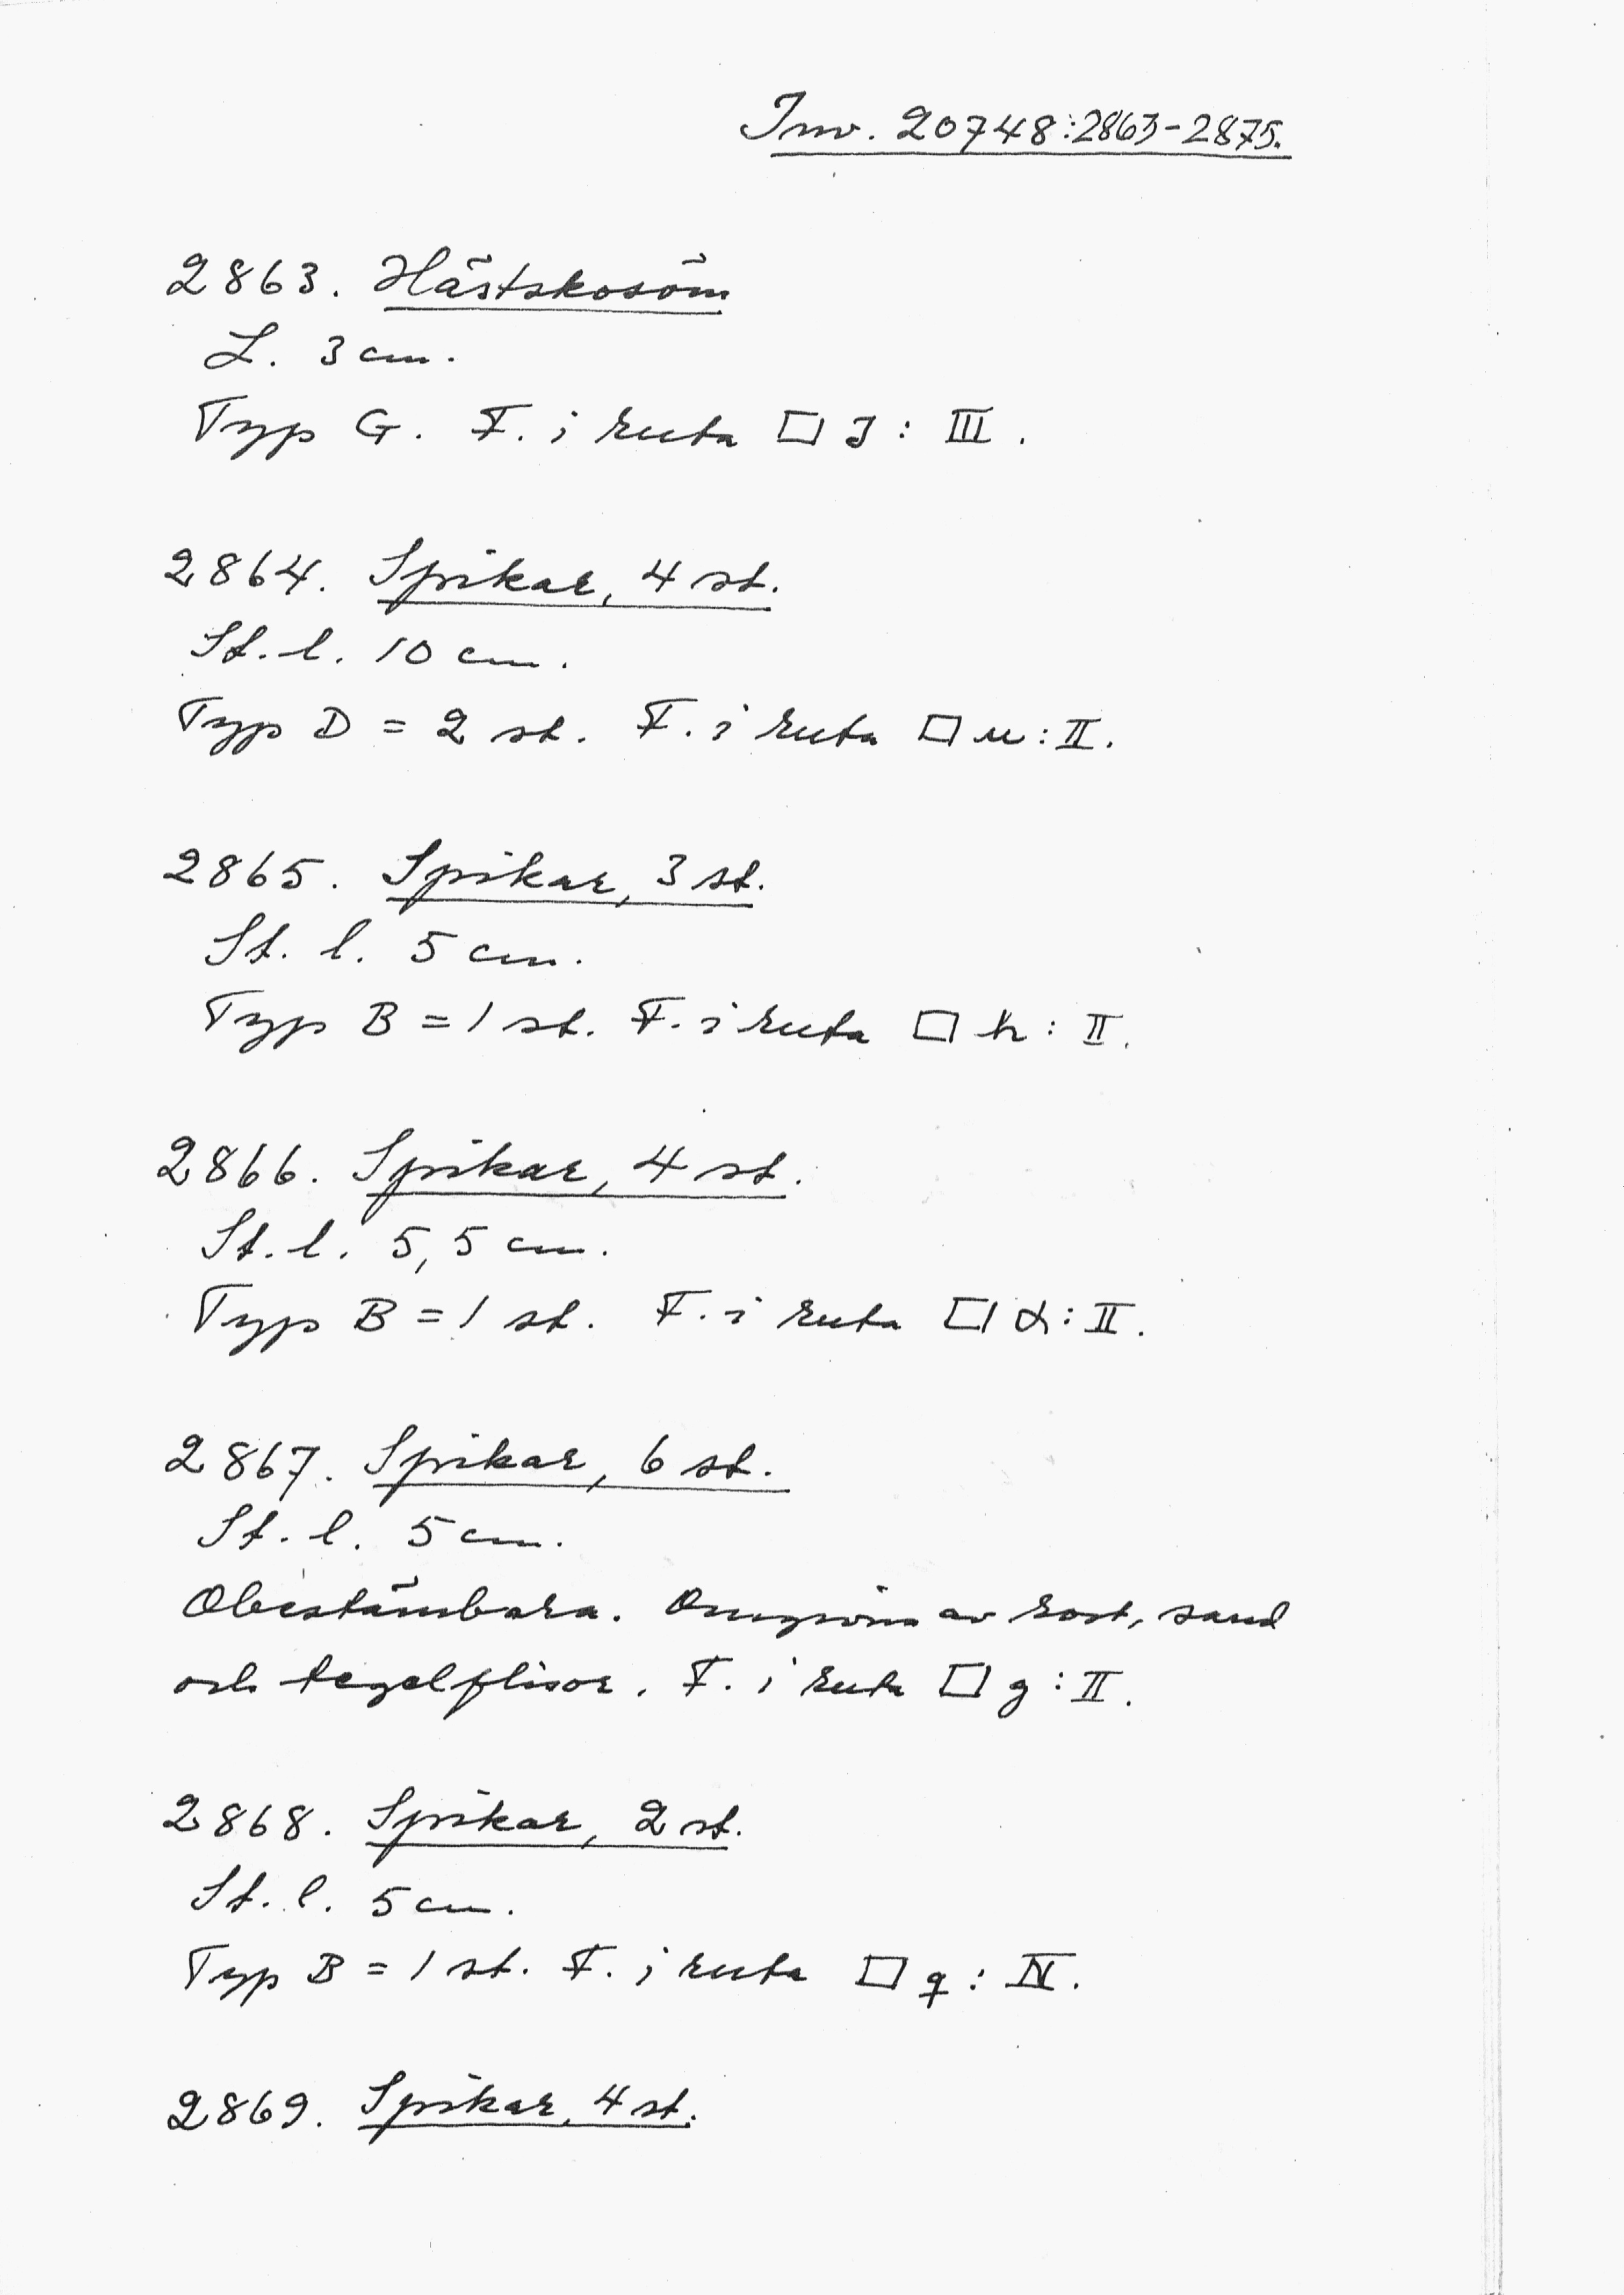 Inv. 20748:2863-2875.
2863. Hästskosöm
L. 3 cm.
Typ G. F. i ruta □ J : III.
2864. Spikar, 4 st.
St. l. 10 cm.
Typ D = 2 st. F. i ruta □ u : II.
2865. Spikar, 3 st.
St. l. 5 cm.
Typ B = 1 st. F. i ruta □ h : II.
2866. Spikar, 4 st.
St. l. 5,5 cm.
Typ B = 1 st. F. i ruta □ : II.
2867. Spikar, 6 st.
St. l. 5 cm.
Obestämbara. Omgivna av rost, sand
och tegelflisor. F. i ruta □ g : II.
2868. Spikar, 2 st.
St. l. 5 cm.
Typ B = 1 st. F. i ruta □ q : IV.
2869. Spikar, 4 st.